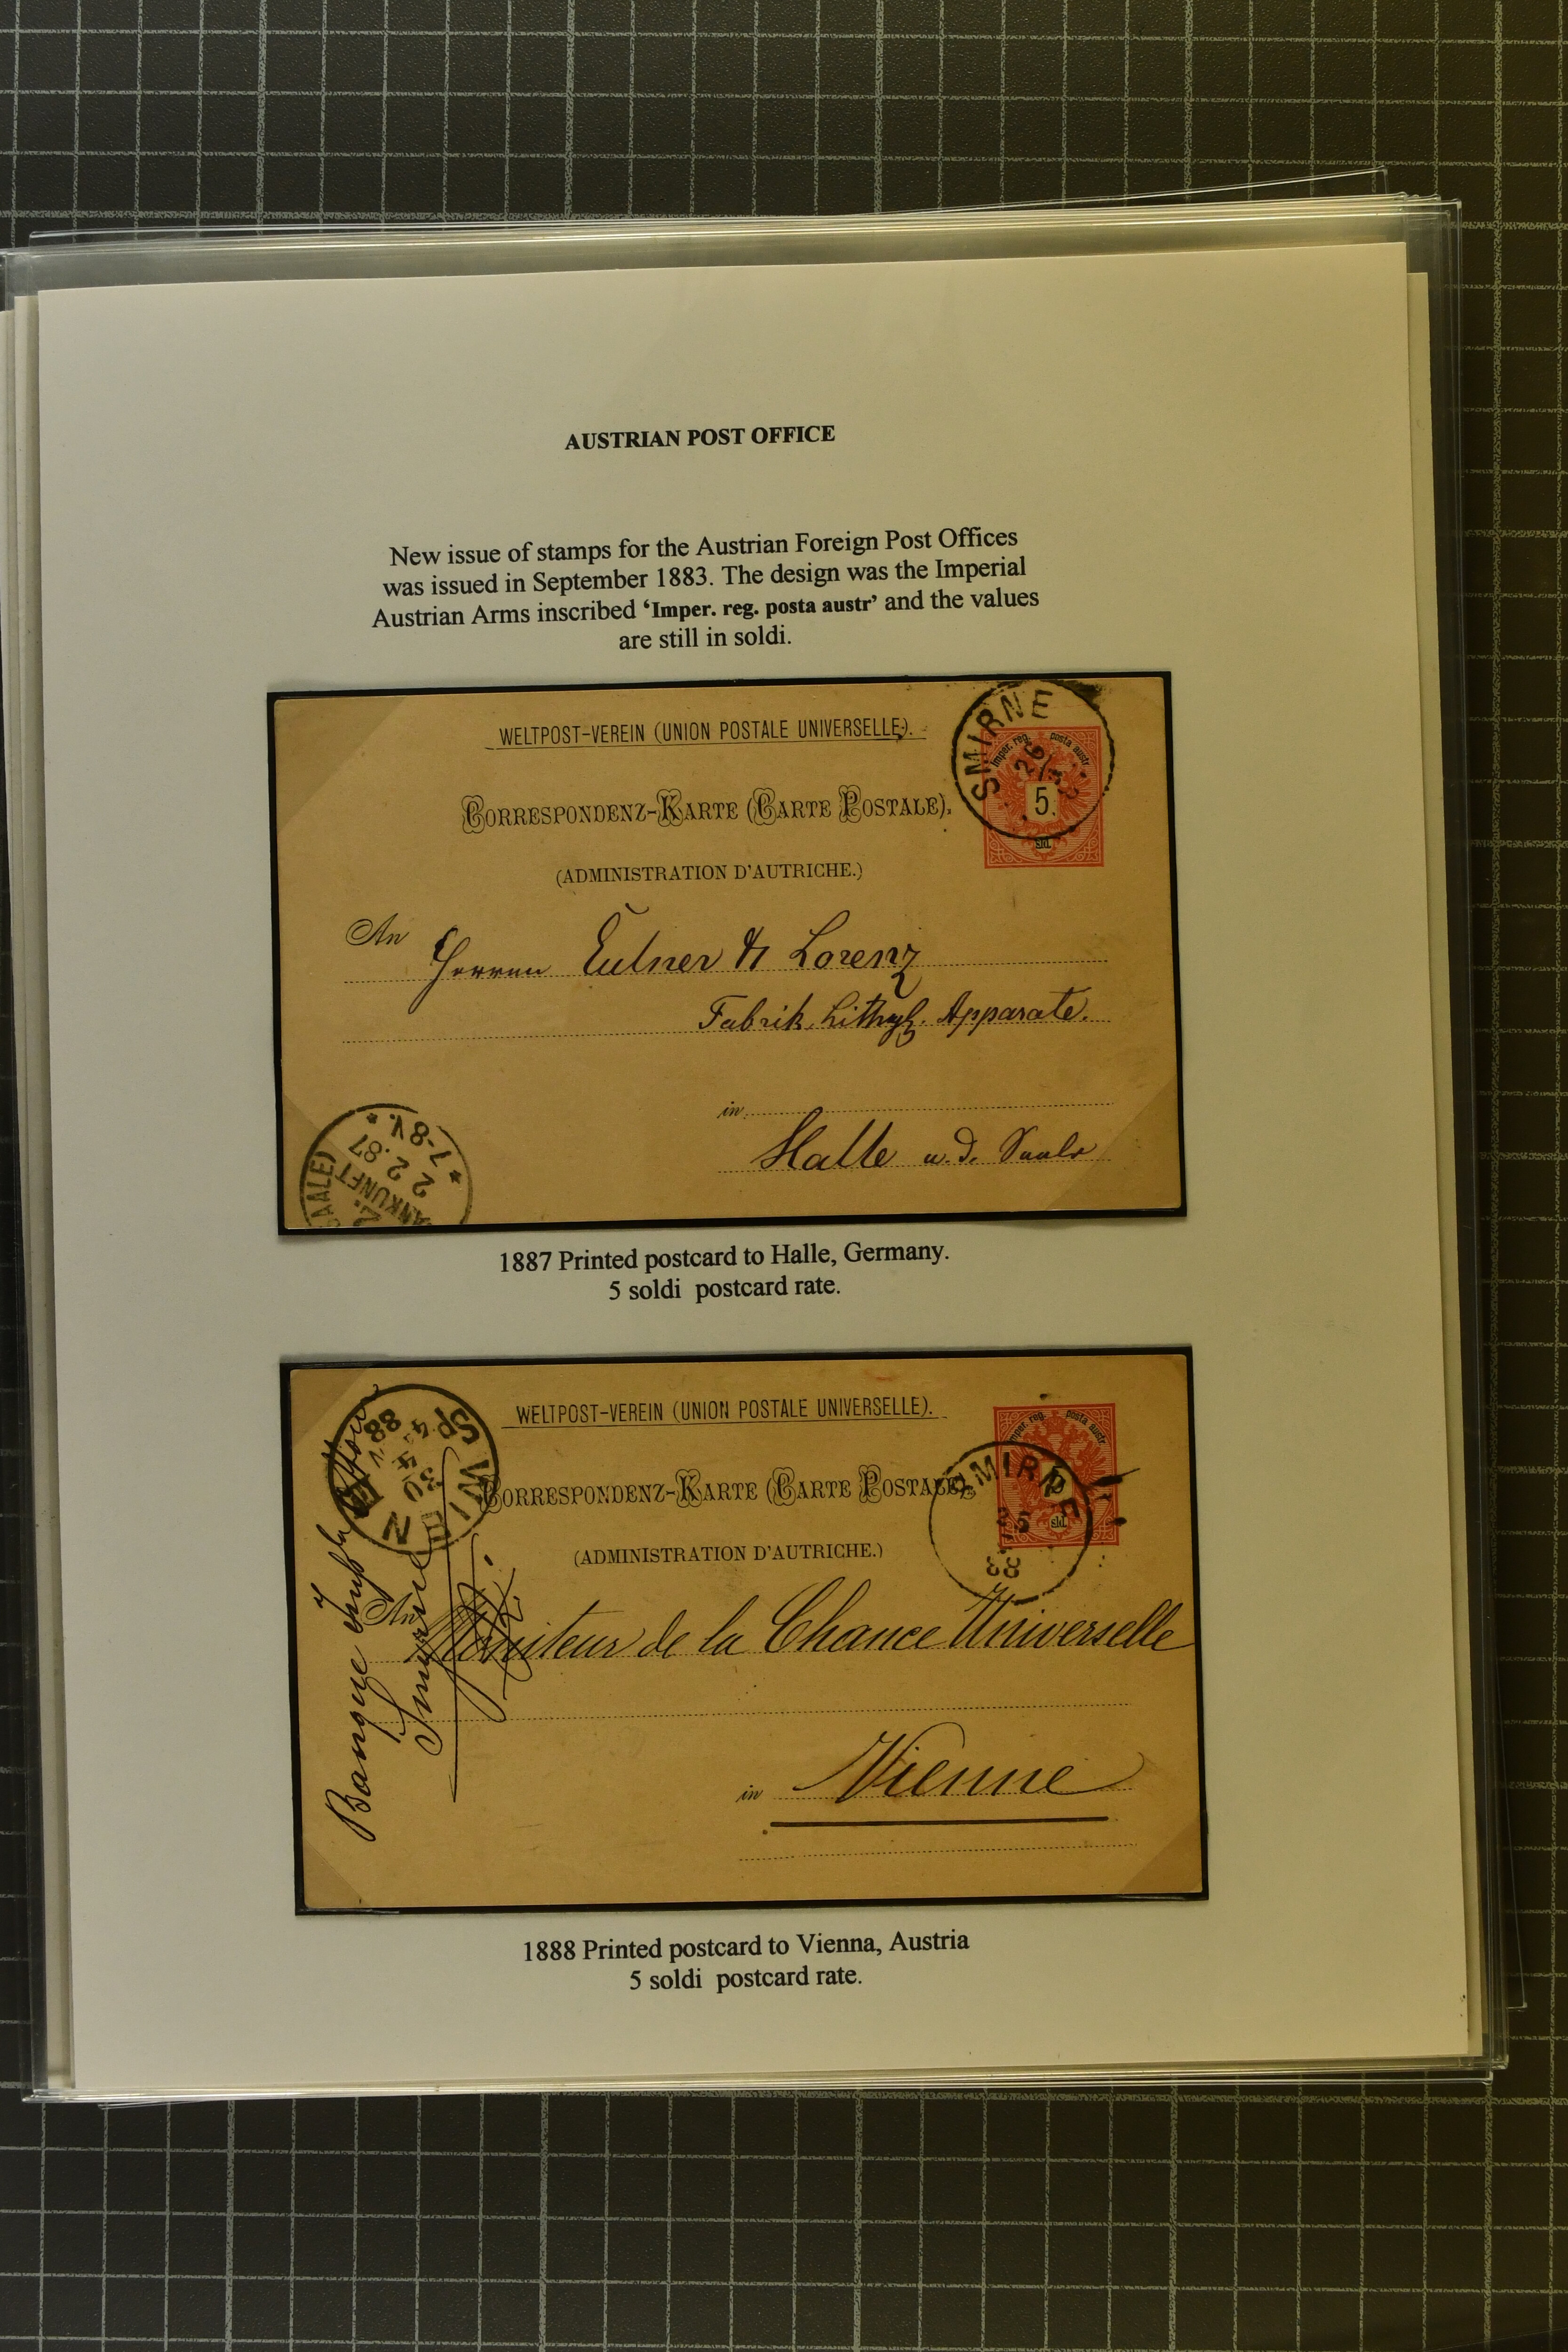 AUSTRIAN POST OFFICE
New issue of stamps for the Austrian Foreign Post Offices
was issued in September 1883. The design was the Imperial
Austrian Arms inscribed ‘Imper. reg. posta austr’ and the values
are still in soldi.
WELTPOST-VEREIN (UNION POSTALE UNIVERSELLE).
SMIRNE
26
Imper. reg. posta austr.
5.
sld.
CORRESPONDENZ-KARTE (CARTE POSTALE).
(ADMINISTRATION D'AUTRICHE.)
An Herren Eulner & Lorenz
Fabrik. Lithogr. Apparate.
in
Halle a. d. Saale
SAALE)
ANKUNFT
2 2.87
7-8V.
1887 Printed postcard to Halle, Germany.
5 soldi postcard rate.
WELTPOST-VEREIN (UNION POSTALE UNIVERSELLE).
WIEN
88
Imper. reg. posta austr.
5
sld.
SMIRNE
88
CORRESPONDENZ-KARTE (CARTE POSTALE).
(ADMINISTRATION D'AUTRICHE.)
An Moniteur de la Chance Universelle
in Vienne
Banque
Smyrne
1888 Printed postcard to Vienna, Austria
5 soldi postcard rate.